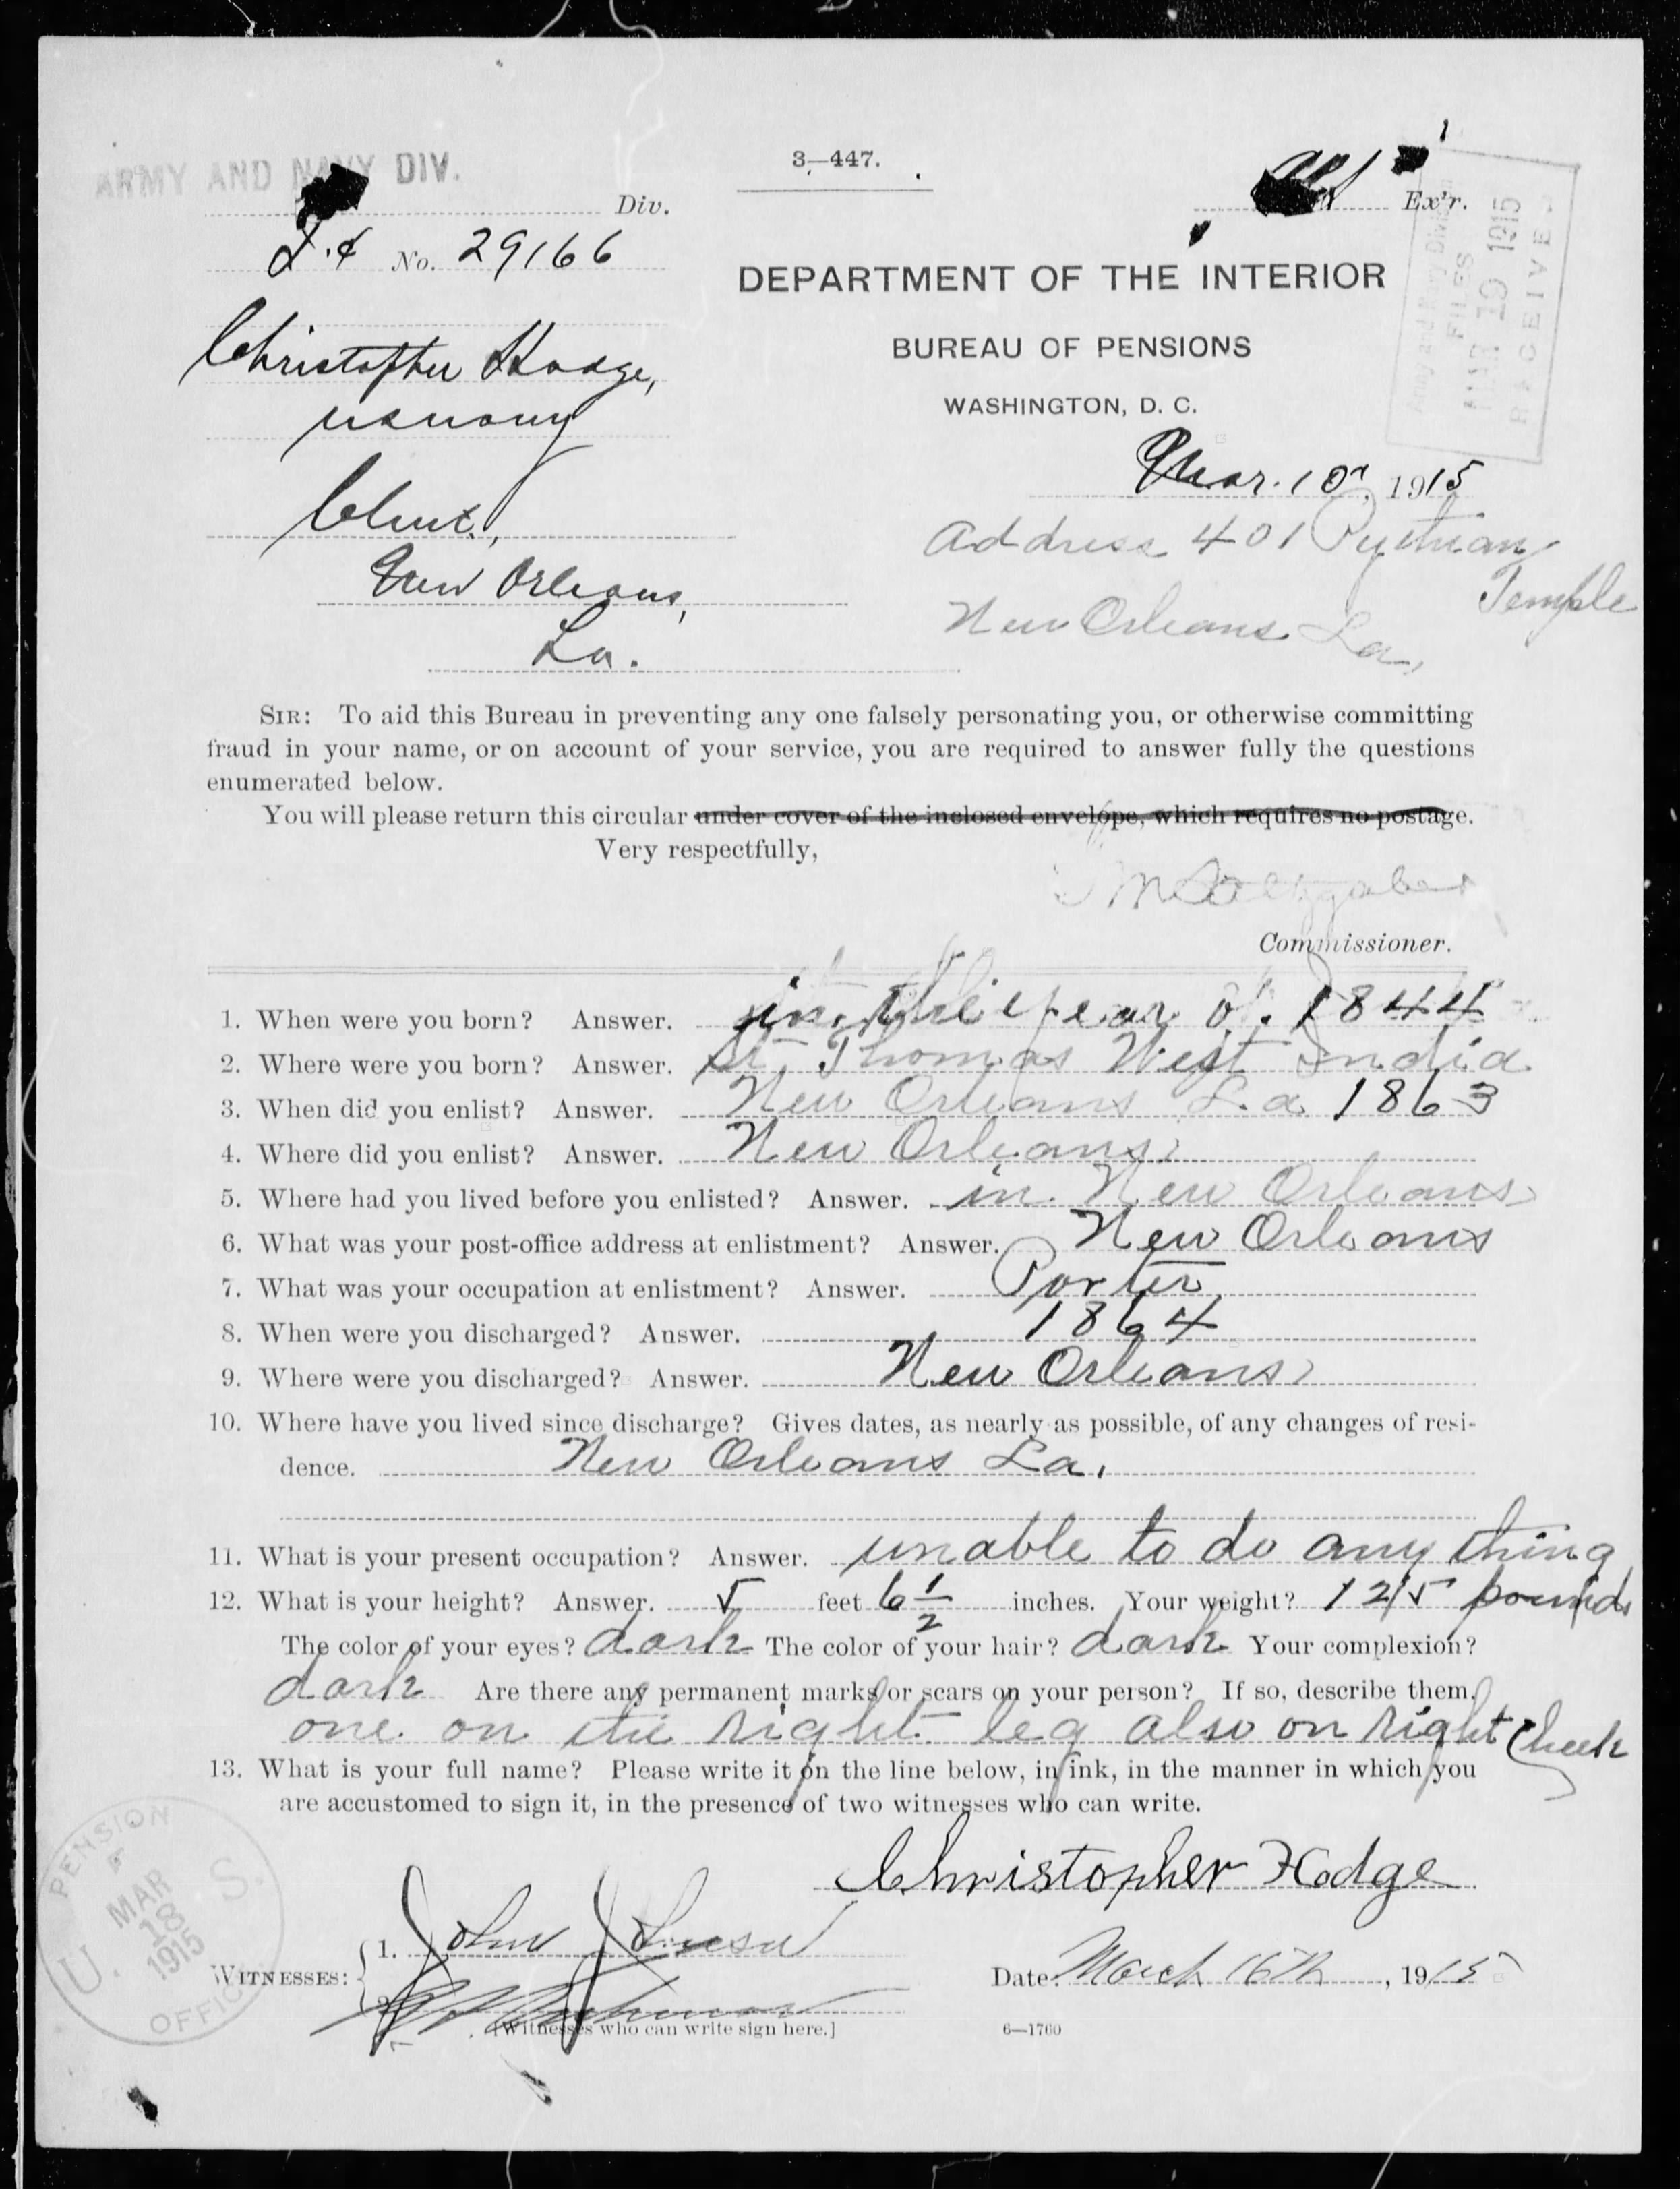 3—447.
ARMY AND NAVY DIV.
Div.
Ex'r.
No. 29166
Army and Navy Division
FILES
MAR 19 1915
RECEIVED
DEPARTMENT OF THE INTERIOR
BUREAU OF PENSIONS
WASHINGTON, D. C.
Christopher Hodge,
Mar. 10, 1915
Address 401 Pythian
Temple
New Orleans,
New Orleans La,
La.
SIR: To aid this Bureau in preventing any one falsely personating you, or otherwise committing
fraud in your name, or on account of your service, you are required to answer fully the questions
enumerated below.
You will please return this circular under cover of the inclosed envelope, which requires no postage.
Very respectfully,
Commissioner.
1. When were you born? Answer. in the year of 1844
2. Where were you born? Answer. St. Thomas West India
3. When did you enlist? Answer. New Orleans La 1863
4. Where did you enlist? Answer. New Orleans
5. Where had you lived before you enlisted? Answer. in New Orleans
6. What was your post-office address at enlistment? Answer. New Orleans
7. What was your occupation at enlistment? Answer. Porter
8. When were you discharged? Answer. 1864
9. Where were you discharged? Answer. New Orleans
10. Where have you lived since discharge? Gives dates, as nearly as possible, of any changes of resi-
dence. New Orleans La.
11. What is your present occupation? Answer. unable to do any thing
12. What is your height? Answer. 5 feet 6 1/2 inches. Your weight? 125 pounds
The color of your eyes? dark The color of your hair? dark Your complexion?
dark Are there any permanent marks or scars on your person? If so, describe them.
one on the right leg also on right Cheek
13. What is your full name? Please write it on the line below, in ink, in the manner in which you
are accustomed to sign it, in the presence of two witnesses who can write.
Christopher Hodge
U. S. PENSION OFFICE
MAR 18 1915
WITNESSES:
1. John
2.
[Witnesses who can write sign here.]
Date March 16th, 1915
6—1760